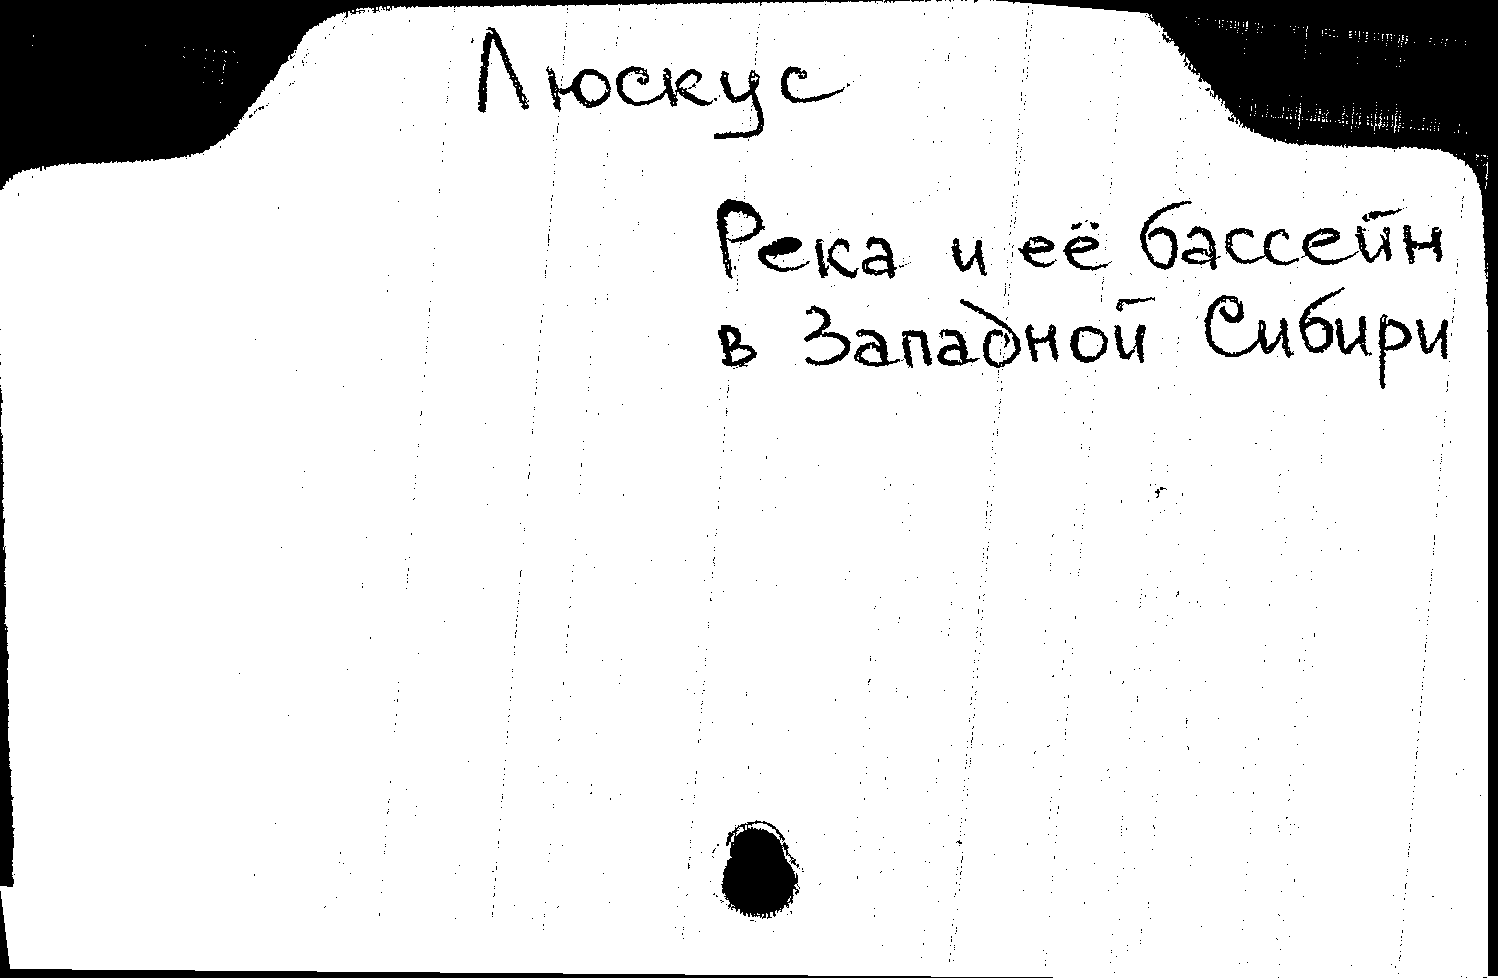 Люскус
Река и её бассейн
в Западной Сибири